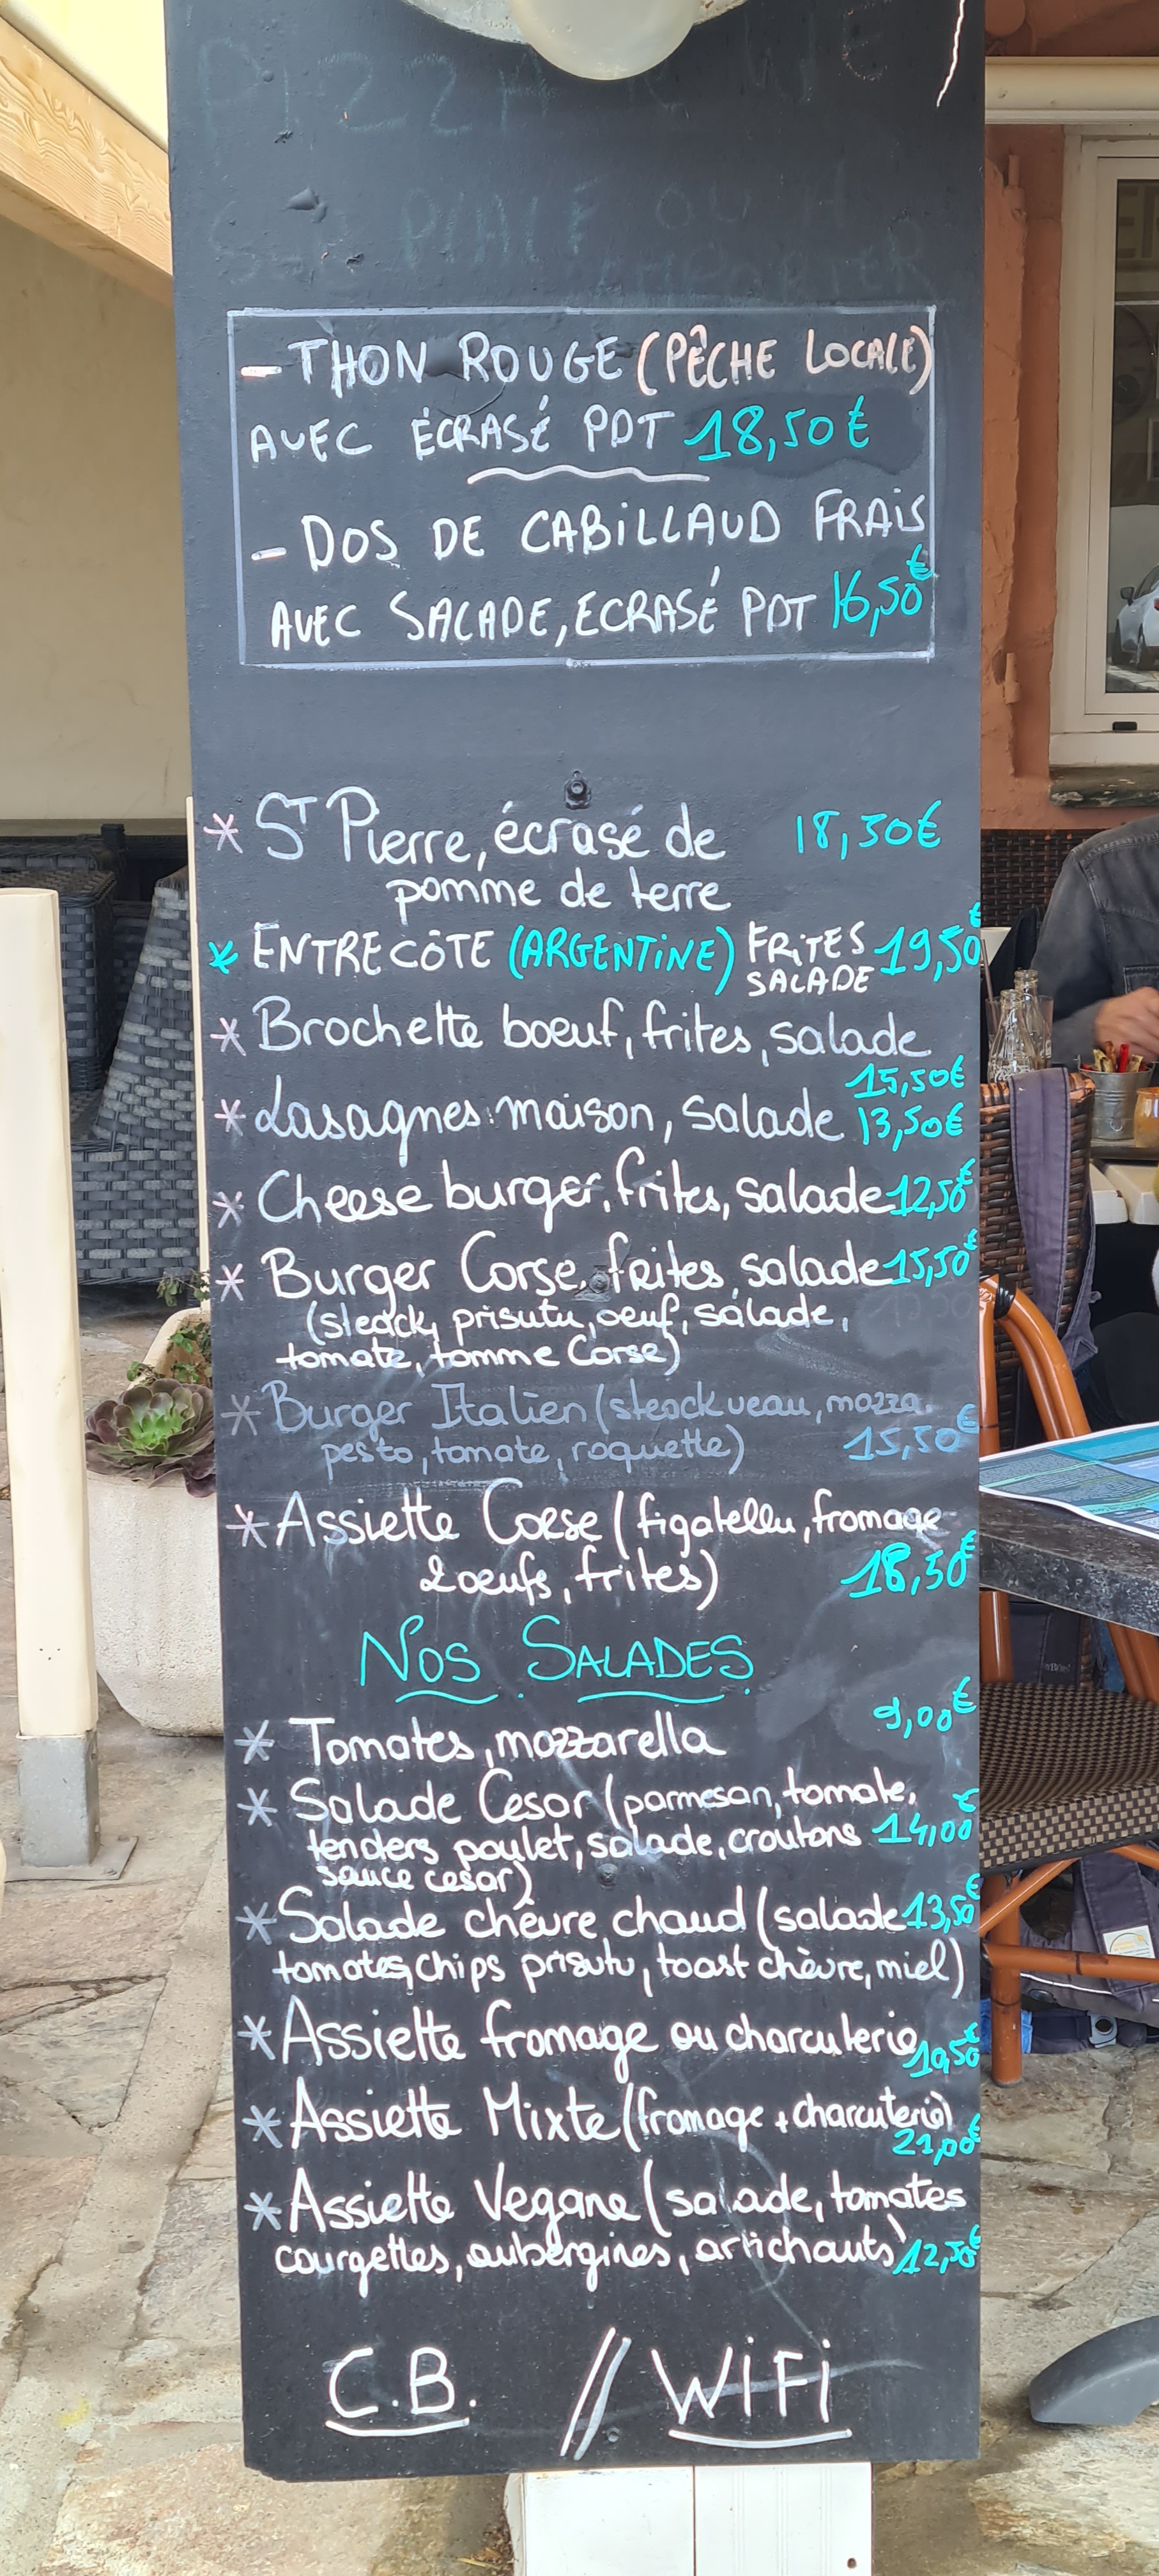 PIZZA
- THON ROUGE (PÊCHE LOCALE)
AVEC ÉCRASÉ PDT 18,50€
- DOS DE CABILLAUD FRAIS
AVEC SALADE, ECRASÉ PDT 16,50€
* ST Pierre, écrasé de 18,50€
pomme de terre
* ENTRECÔTE (ARGENTINE) FRITES SALADE 19,50€
* Brochette boeuf, frites, salade
15,50€
* Lasagnes maison, salade 13,50€
* Cheese burger, frites, salade 12,50€
* Burger Corse, frites, salade 15,50€
(steack, prisutu, oeuf, salade,
tomate, tomme Corse)
* Burger Italien (steack veau, mozza,
pesto, tomate, roquette) 15,50€
* Assiette Corse (figatellu, fromage
2 oeufs, frites) 18,50€
NOS SALADES
* Tomates, mozzarella 9,00€
* Salade Cesar (parmesan, tomate,
tenders poulet, salade, croutons 14,00€
sauce cesar)
* Salade chèvre chaud (salade 13,50€
tomates, chips prisutu, toast chèvre, miel)
* Assiette fromage ou charcuterie
10,50€
* Assiette Mixte (fromage + charcuterie)
21,00€
* Assiette Vegane (salade, tomates
courgettes, aubergines, artichauts) 12,50€
C.B. // WIFI